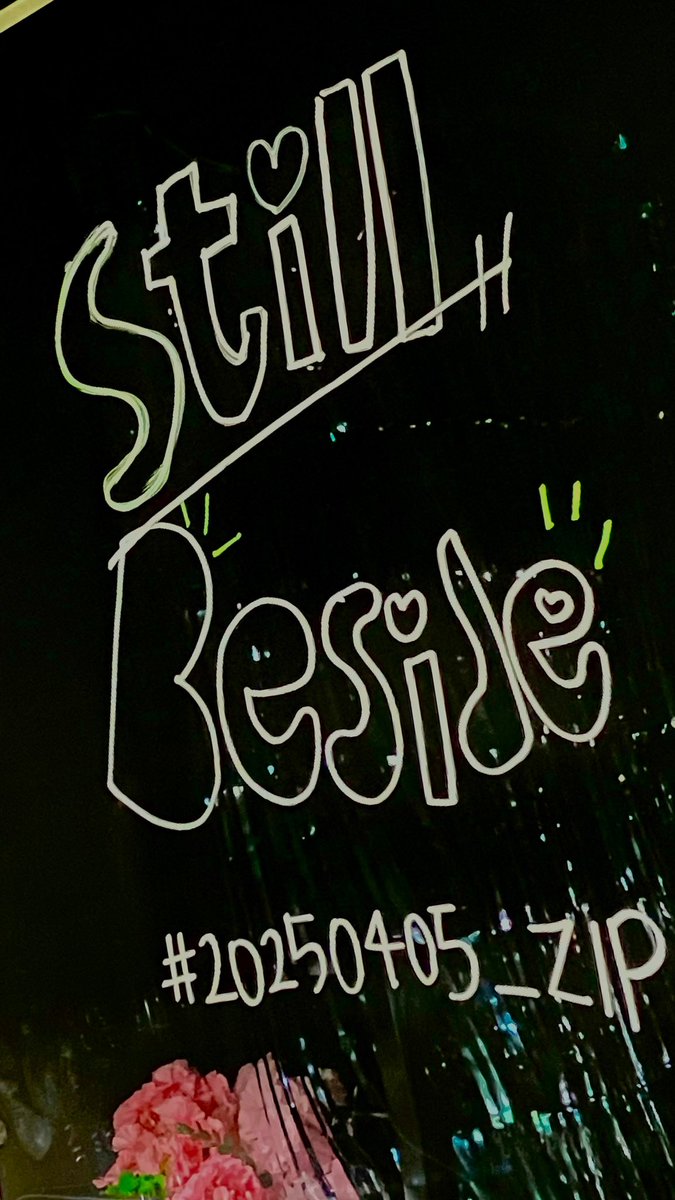 Still
Beside
#20250405_ZIP